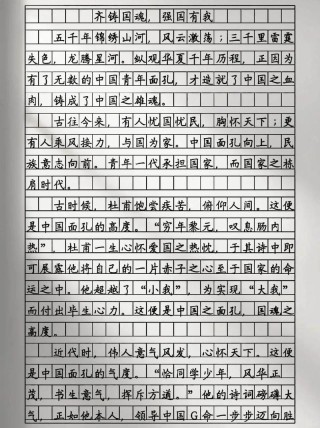 齐铸国魂，强国有我
五千年锦绣山河，风云激荡；三千里雷霆
失色，龙腾星河。纵观华夏千年历程，正因为
有了无数的中国青年面孔，才造就了中国之血
肉，铸成了中国之雄魂。
古往今来，有人忧国忧民，胸怀天下；更
有人乘风接力，与国为家。中国面孔向上，民
族意志向前。青年一代承担国家，而国家之栋
肩时代。
古时候，杜甫饱尝疾苦，俯仰人间。这便
是中国面孔的高度。“穷年黎元，叹息肠内
热”，杜甫一生心怀爱国之热忱，于其诗中即
可展露他将自己的一片赤子之心至于国家的命
运之中。他超越了“小我”，为实现“大我”
而付出毕生心力。这便是中国之面孔，国魂之
高度。
近代时，伟人意气风发，心怀天下。这便
是中国面孔的气度。“恰同学少年，风华正
茂，书生意气，挥斥方遒。”他的诗词磅礴大
气，正如他本人，领导中国G命一步步迈向胜